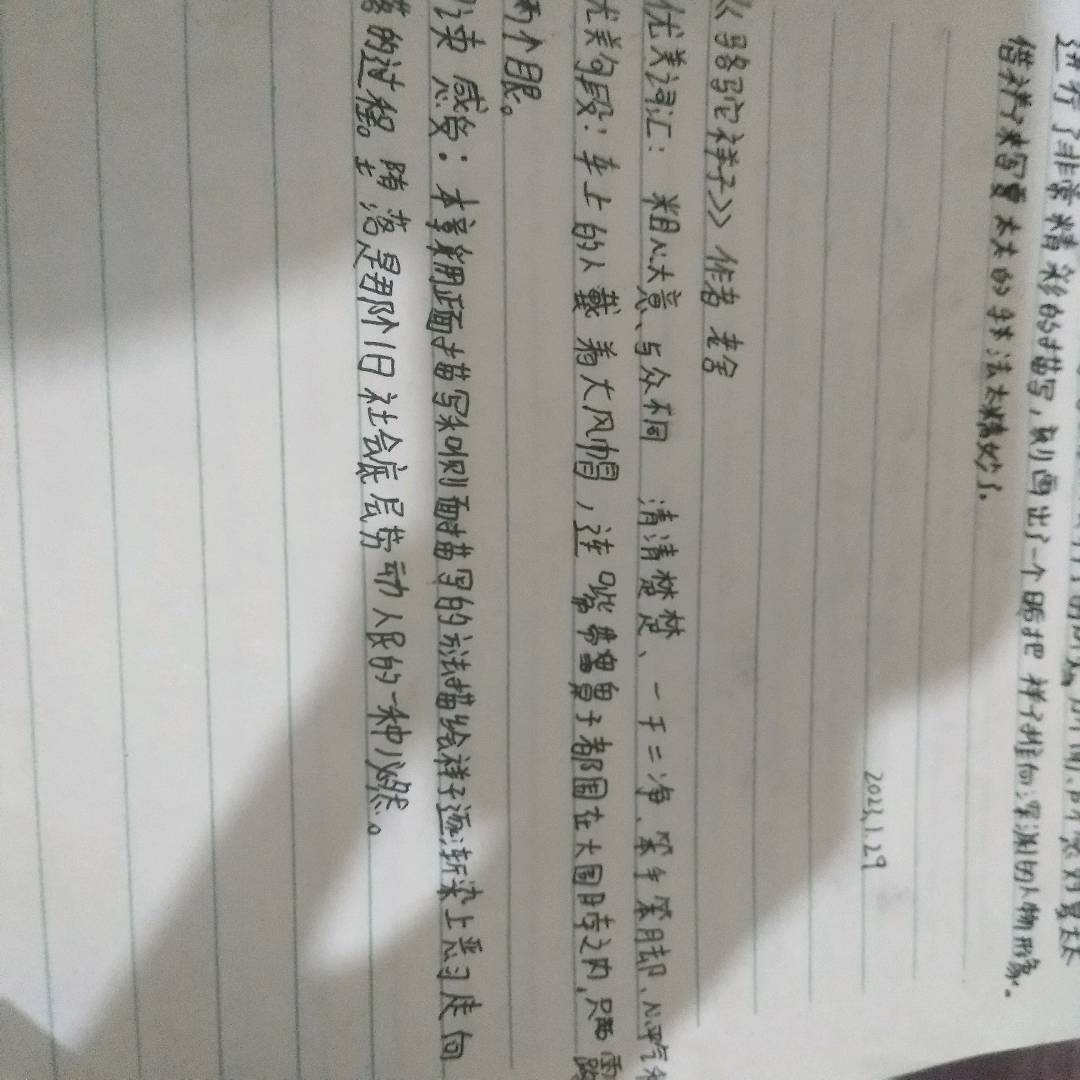 进行了非常精彩的描写,刻画出了一个晤把祥子推向深渊的人物形象.
借祥子来写夏太太的手法太精妙了.
2023.1.29
《骆驼祥子》作者 老舍
优美词汇: 粗心大意、与众不同 清清楚楚、一干二净、笨手笨脚、心平气和
优美句段:车上的人戴着大风帽,连嘴带鼻子都围在大围脖之内,只露
两个眼。
读感:本章用正面描写和侧面描写的方法描绘祥子逐渐染上恶习走向
落的过程。 堕落是那个旧社会底层劳动人民的一种必然。